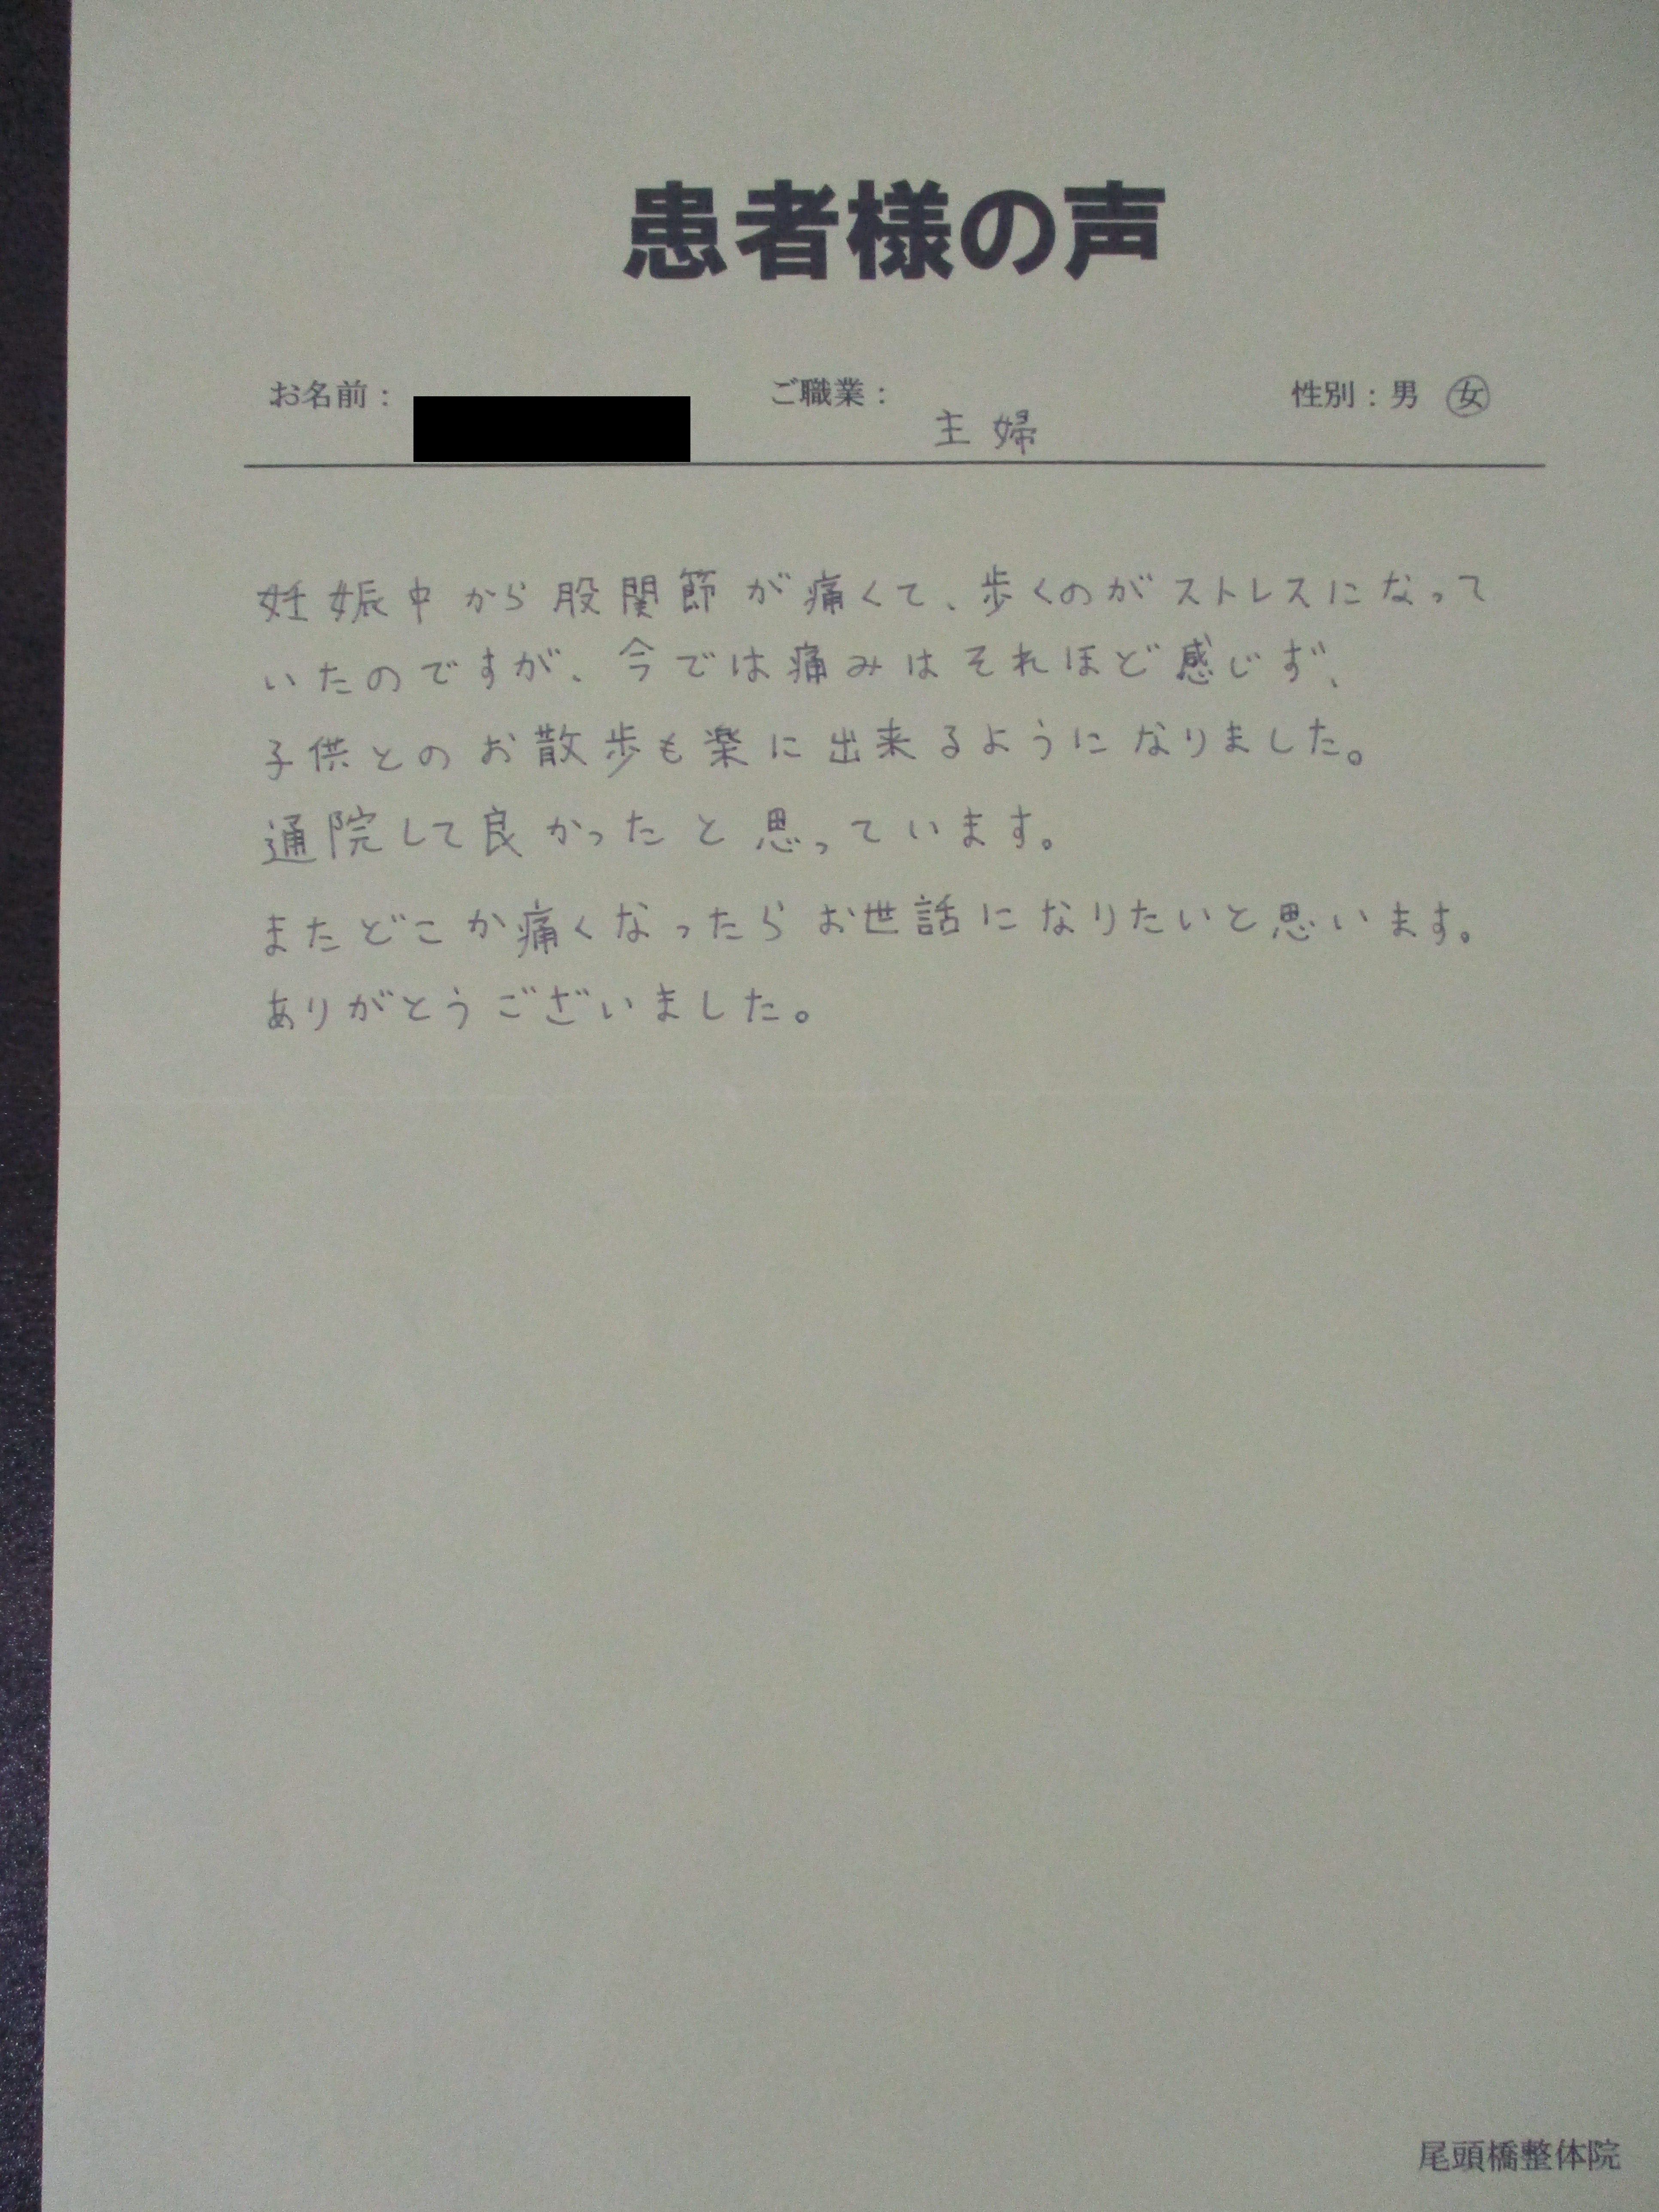 患者様の声
お名前： ご職業：主婦 性別：男 女
妊娠中から股関節が痛くて、歩くのがストレスになって
いたのですが、今では痛みはそれほど感じず、
子供とのお散歩も楽に出来るようになりました。
通院して良かったと思っています。
またどこか痛くなったらお世話になりたいと思います。
ありがとうございました。
尾頭橋整体院